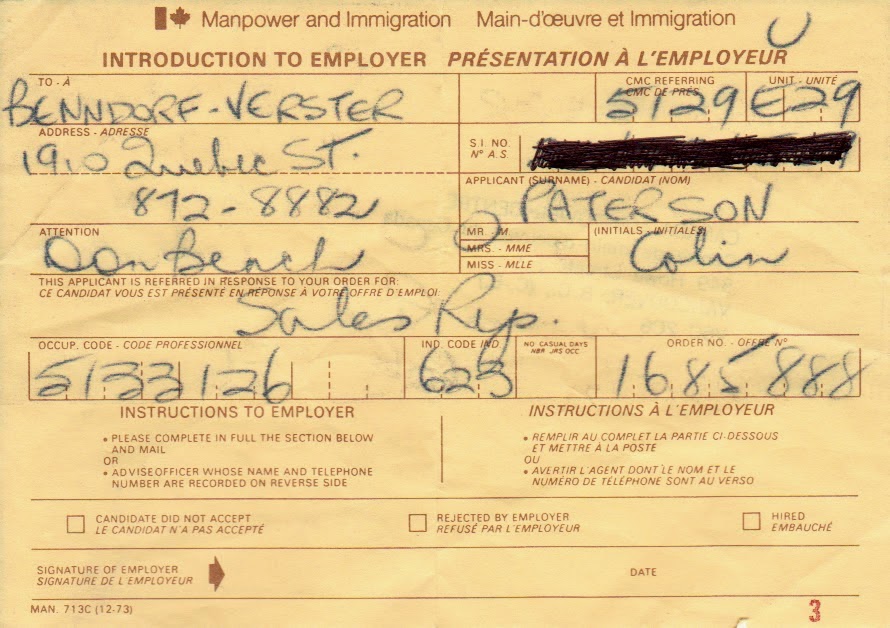 Manpower and Immigration Main-d'œuvre et Immigration
INTRODUCTION TO EMPLOYER PRÉSENTATION À L'EMPLOYEUR
TO - À
CMC REFERRING
CMC DE PRÉS.
UNIT - UNITÉ
BENNDORF-VERSTER
5129 E29
ADDRESS - ADRESSE
1910 Quebec ST.
S.I. NO.
N° A.S.
872-8882
APPLICANT (SURNAME) - CANDIDAT (NOM)
PATERSON
ATTENTION
Don Beach
MR. - M
MRS. - MME
MISS - MLLE
(INITIALS - INITIALES)
Colin
THIS APPLICANT IS REFERRED IN RESPONSE TO YOUR ORDER FOR:
CE CANDIDAT VOUS EST PRÉSENTÉ EN RÉPONSE À VOTRE OFFRE D'EMPLOI:
Sales Rep.
OCCUP. CODE - CODE PROFESSIONNEL
IND. CODE IND.
NO CASUAL DAYS
NBR JRS OCC.
ORDER NO. - OFFRE N°
5133126 623 1685888
INSTRUCTIONS TO EMPLOYER
• PLEASE COMPLETE IN FULL THE SECTION BELOW
AND MAIL
OR
• ADVISE OFFICER WHOSE NAME AND TELEPHONE
NUMBER ARE RECORDED ON REVERSE SIDE
INSTRUCTIONS À L'EMPLOYEUR
• REMPLIR AU COMPLET LA PARTIE CI-DESSOUS
ET METTRE À LA POSTE
OU
• AVERTIR L'AGENT DONT LE NOM ET LE
NUMÉRO DE TÉLÉPHONE SONT AU VERSO
CANDIDATE DID NOT ACCEPT
LE CANDIDAT N'A PAS ACCEPTÉ
REJECTED BY EMPLOYER
REFUSÉ PAR L'EMPLOYEUR
HIRED
EMBAUCHÉ
SIGNATURE OF EMPLOYER
SIGNATURE DE L'EMPLOYEUR
DATE
MAN. 713C (12-73)
3